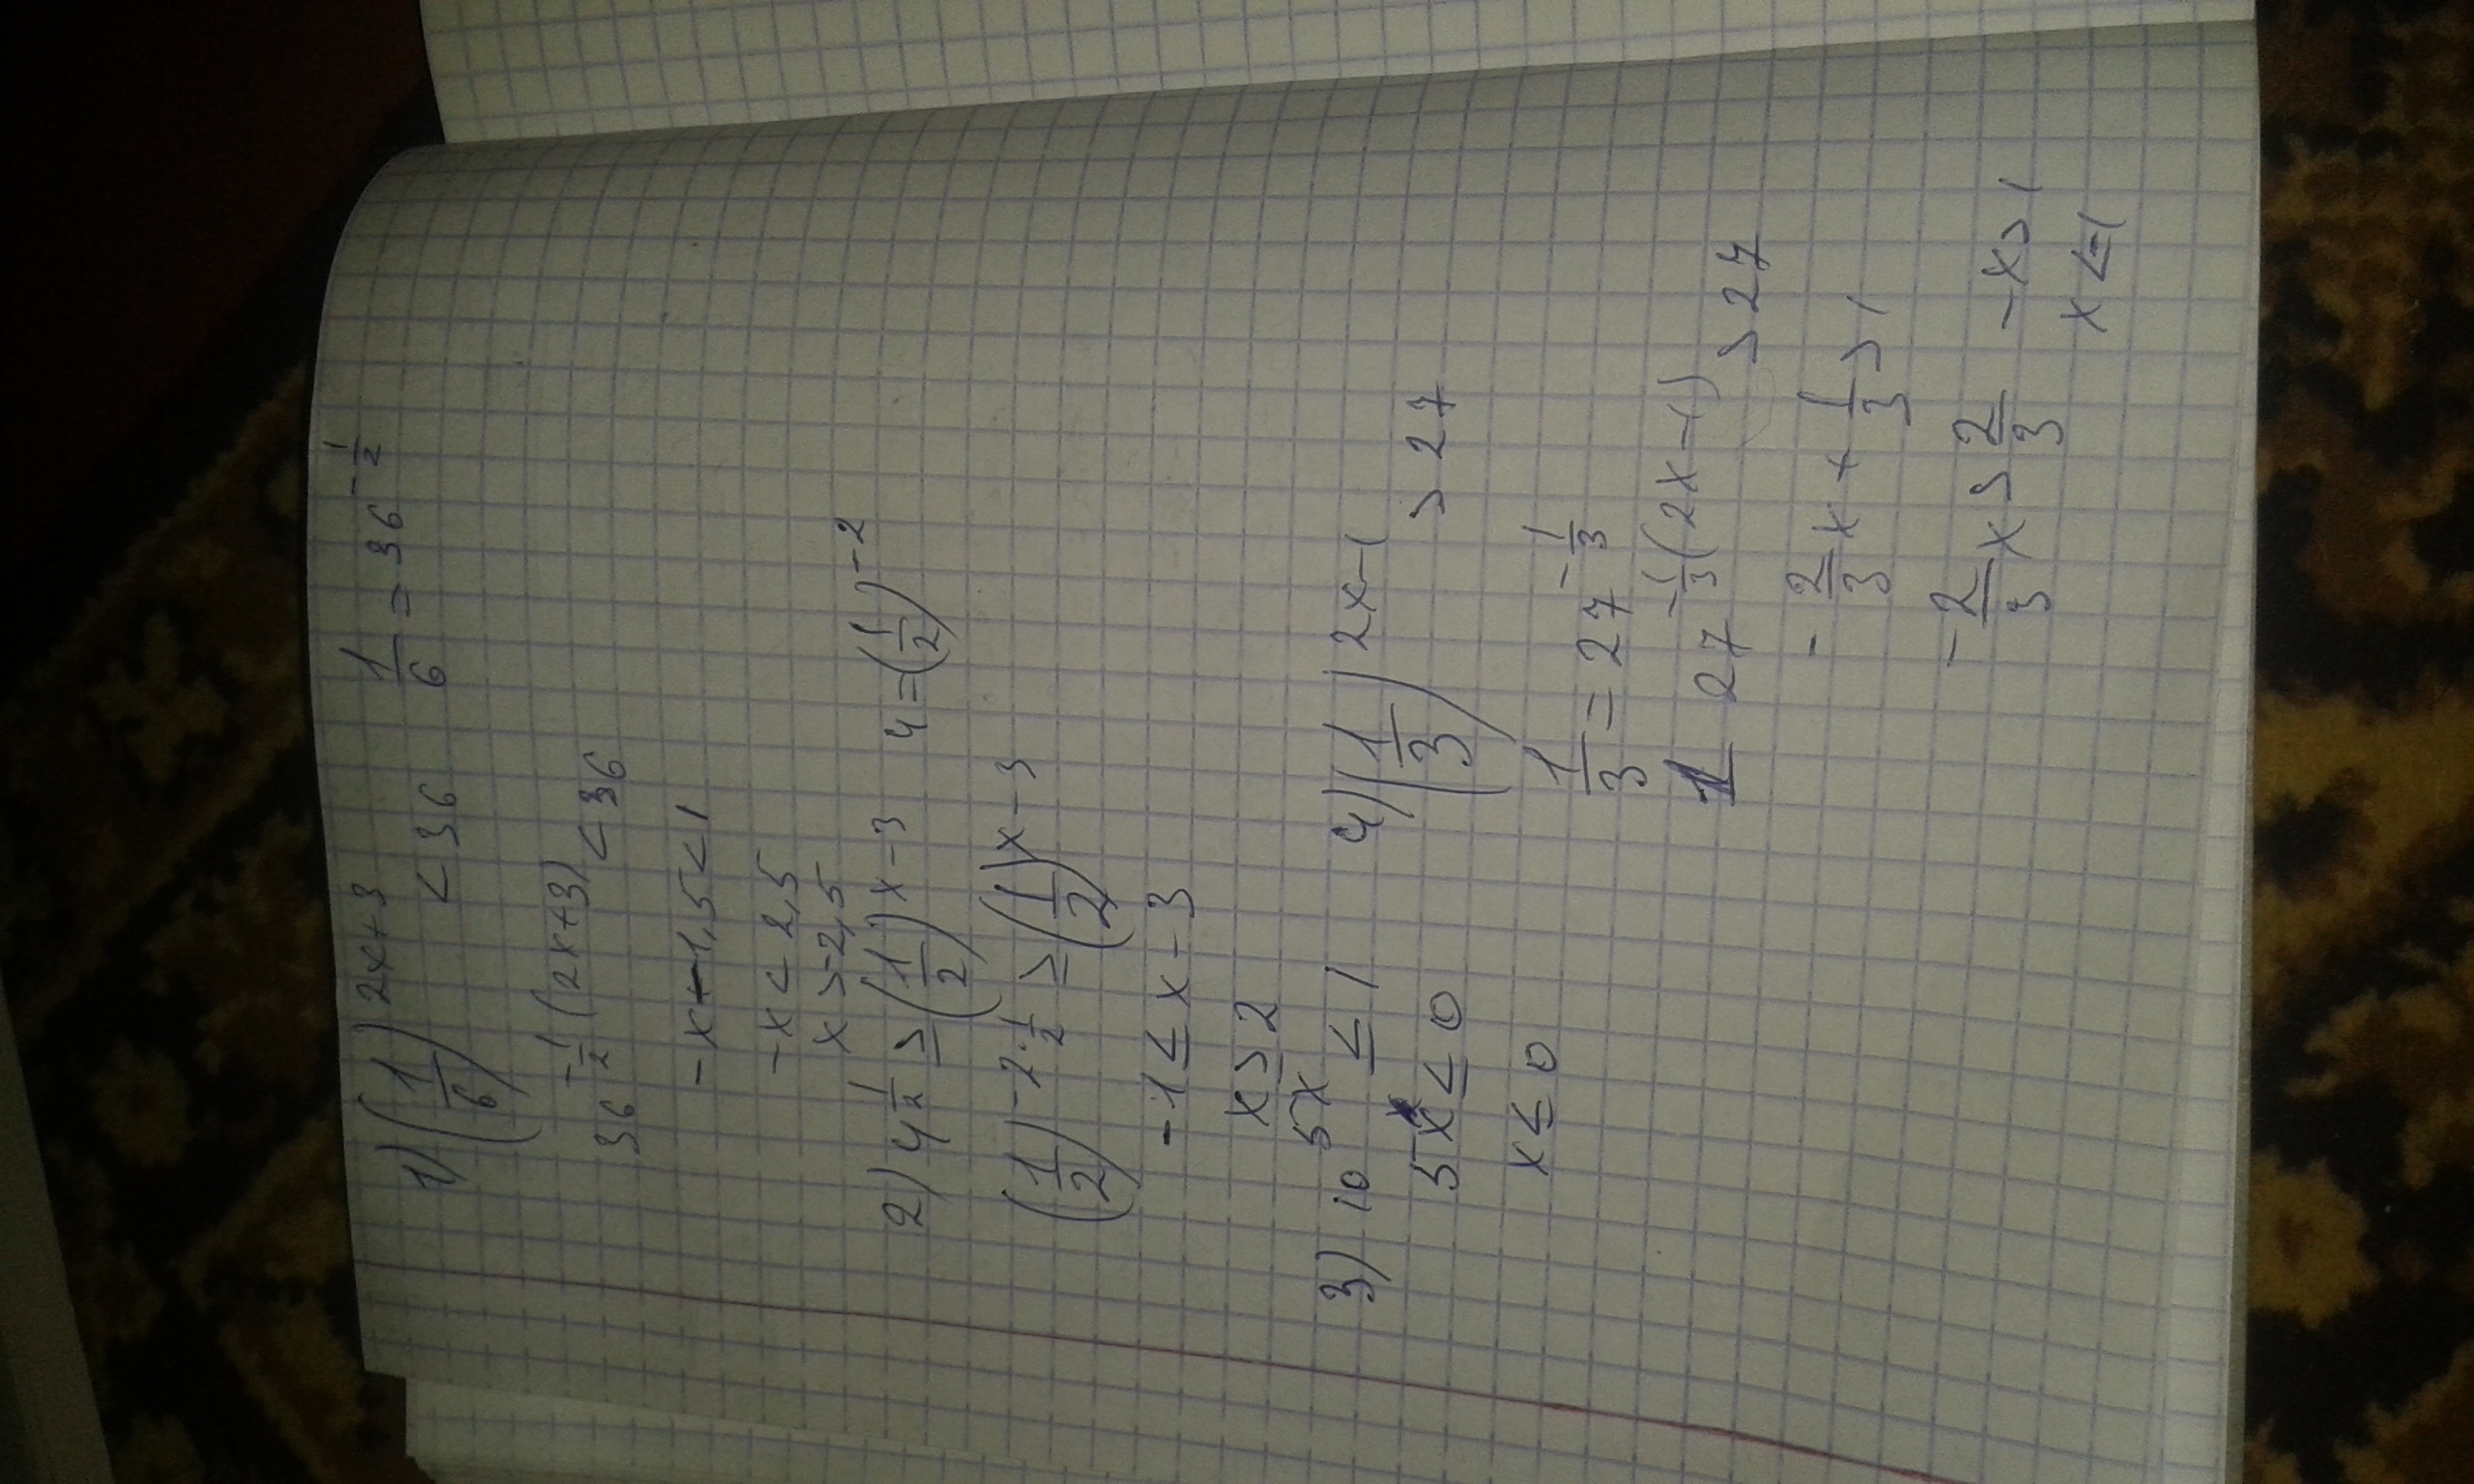 1) (1/6)^2x+3 < 36    1/6 = 36^-1/2
36^-1/2(2x+3) < 36
-x-1,5<1
-x<2,5
x>-2,5
2) 4^1/2 ≥ (1/2)^x-3    4=(1/2)^-2
(1/2)^-2·1/2 ≥ (1/2)^x-3
-1≤x-3
x≥2
3) 10^5x ≤ 1
5x≤0
x≤0
4) (1/3)^2x-1 > 27
1/3 = 27^-1/3
27^-1/3(2x-1) > 27
-2/3x + 1/3 > 1
-2/3x > 2/3    -x>1
x<-1